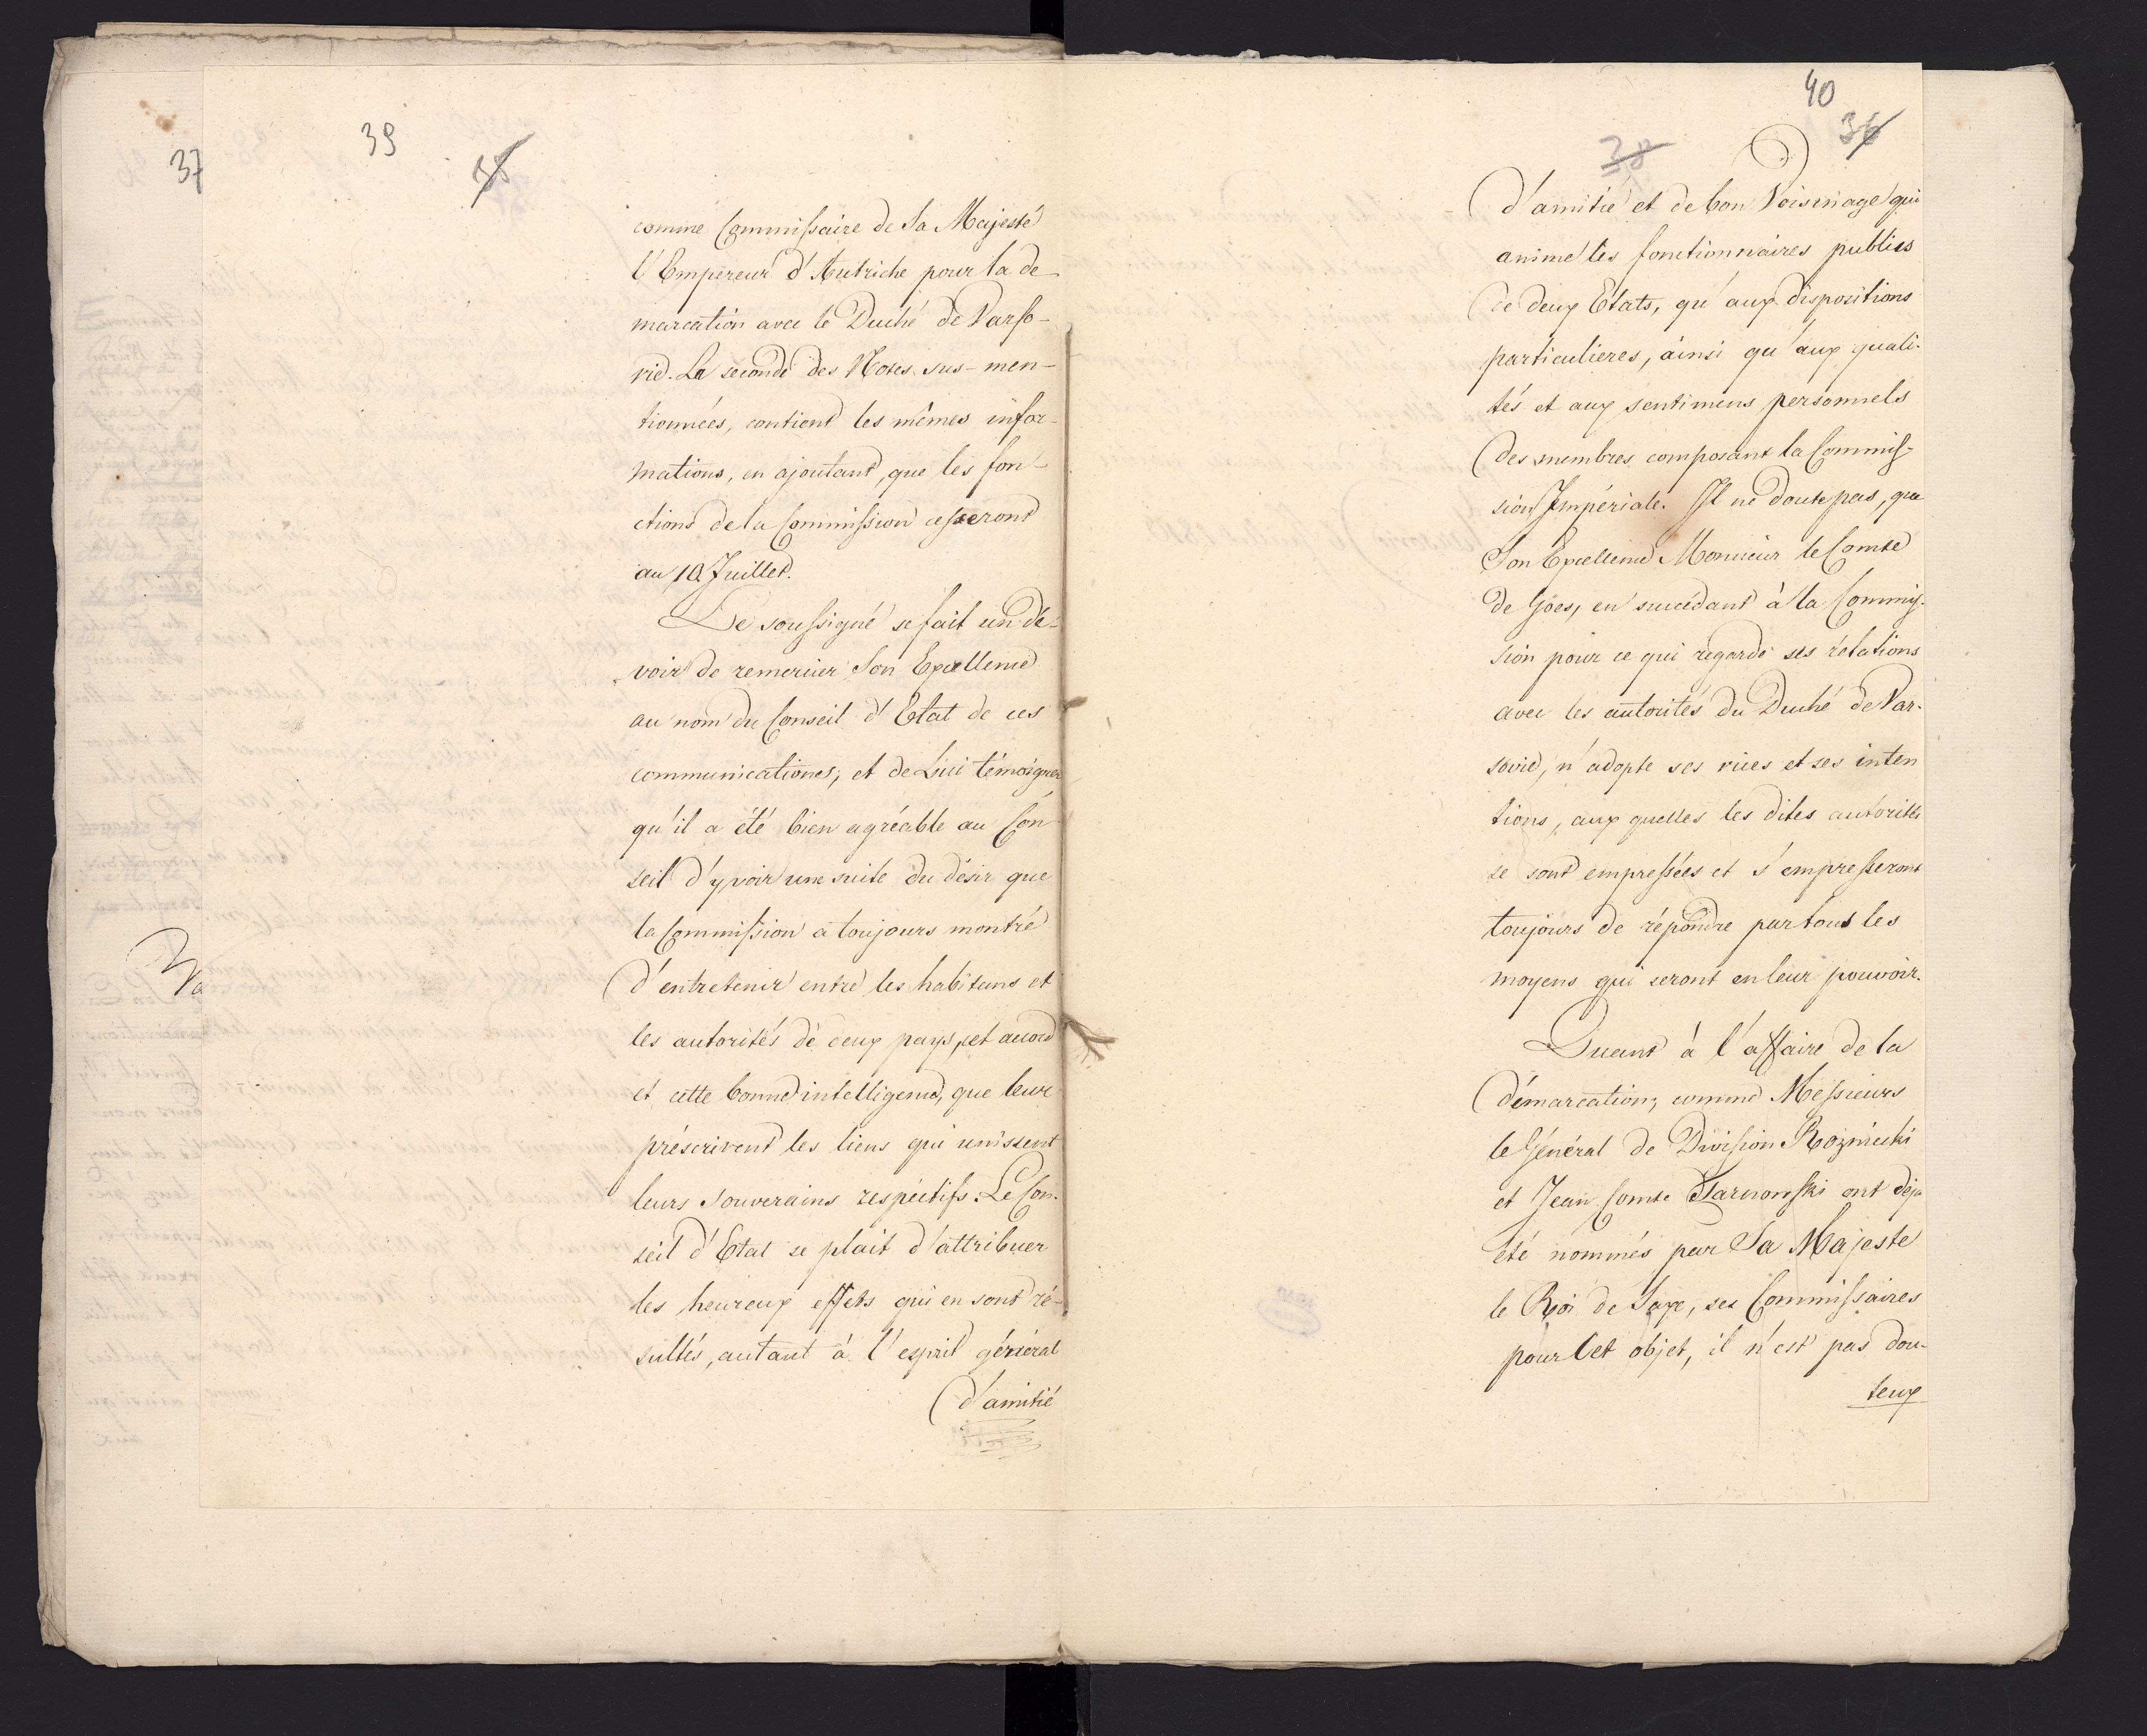 37
39
38
comme Commissaire de Sa Majesté
l'Empereur d'Autriche pour la de-
marcation avec le Duché de Varso-
vie. La seconde des Notes sus-men-
tionnées, contient les mêmes infor-
mations, en ajoutant, que les fon-
ctions de la Commission cesseront
au 10 Juillet.
Le soussigné se fait un de-
voir de remercier Son Excellence
au nom du Conseil d'Etat de ces
communications, et de Lui témoigner
qu'il a été bien agréable au Con-
seil d'y voir une suite du désir que
la Commission a toujours montré
d'entretenir entre les habitans et
les autorités de deux pays, cet accord
et cette bonne intelligence, que leur
préscrivent les liens qui unissent
leurs Souverains respectifs. Le Con-
seil d'Etat se plait d'attribuer
les heureux effets qui en sont ré-
sultés, autant à l'esprit général
d'amitié
40
36
38
d'amitié et de bon Voisinage qui
anime les fonctionnaires publics
de deux Etats, qu'aux dispositions
particulieres, ainsi qu'aux quali-
tés et aux sentimens personnels
des membres composant la Commis-
sion Impériale. Il ne doute pas, que
Son Excellence Monsieur le Comte
de Goes, en succédant à la Commis-
sion pour ce qui regarde ses rélations
avec les autorités du Duché de Var-
sovie, n'adopte ses vues et ses inten
tions, aux quelles les dites autorités
se sont empressées et s'empresseront
toujours de répondre par tous les
moyens qui seront en leur pouvoir.
Quant à l'affaire de la
démarcation, comme Messieurs
le Général de Division Rozniecki
et Jean Comte Tarnowski ont deja
été nommés par Sa Majeste
le Roi de Saxe, ses Commissaires
pour Cet objet, il n'est pas dou-
teux